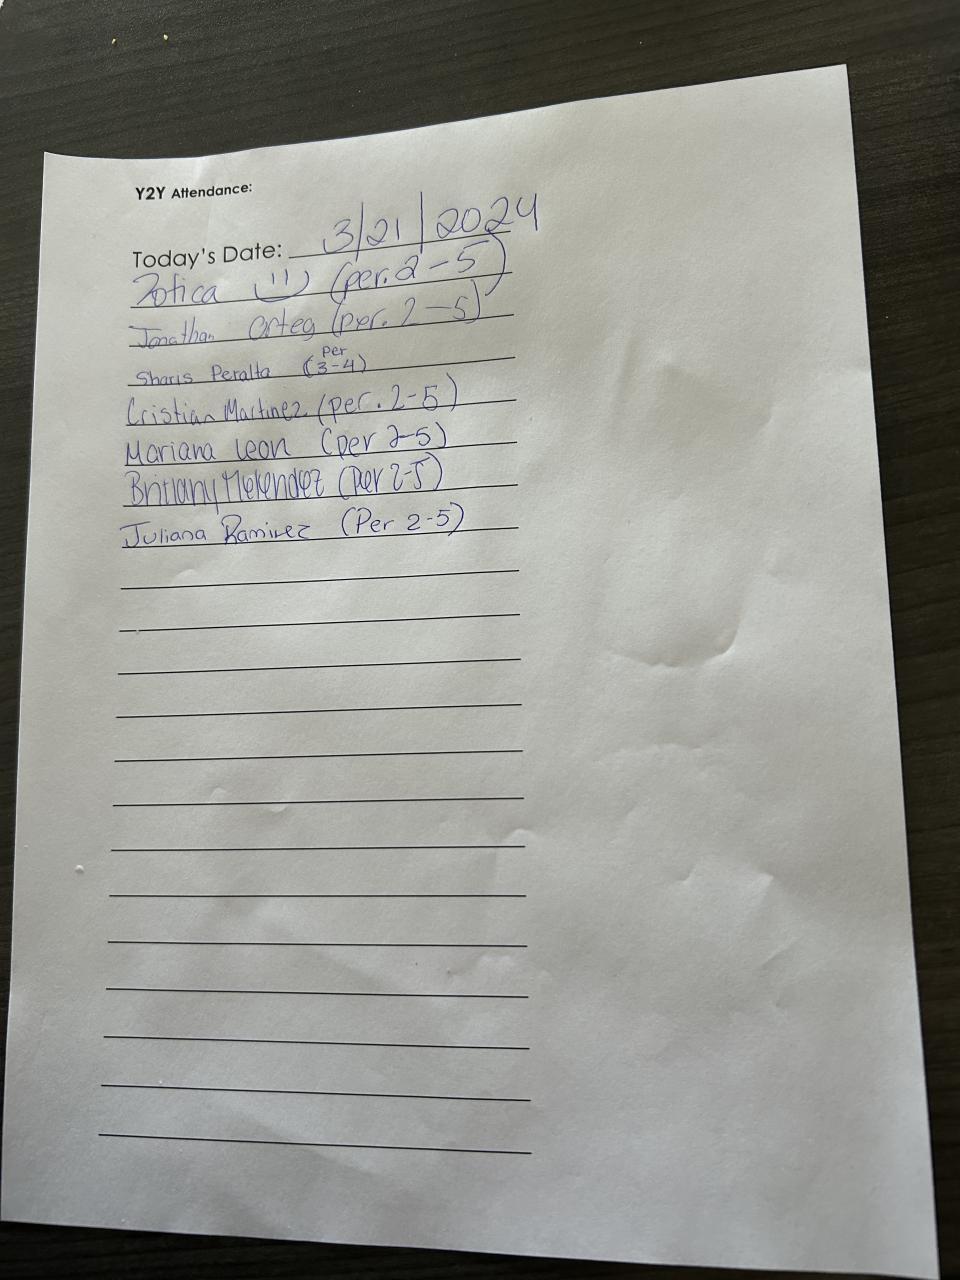 Y2Y Attendance:
Today's Date: 3/21/2024
Zotica (per. 2-5)
Jonathan Orteg (per. 2-5)
Sharis Peralta (Per 3-4)
Cristian Martinez (per. 2-5)
Mariana Leon (per 2-5)
Brittany Melendez (Per 2-5)
Juliana Ramirez (Per 2-5)